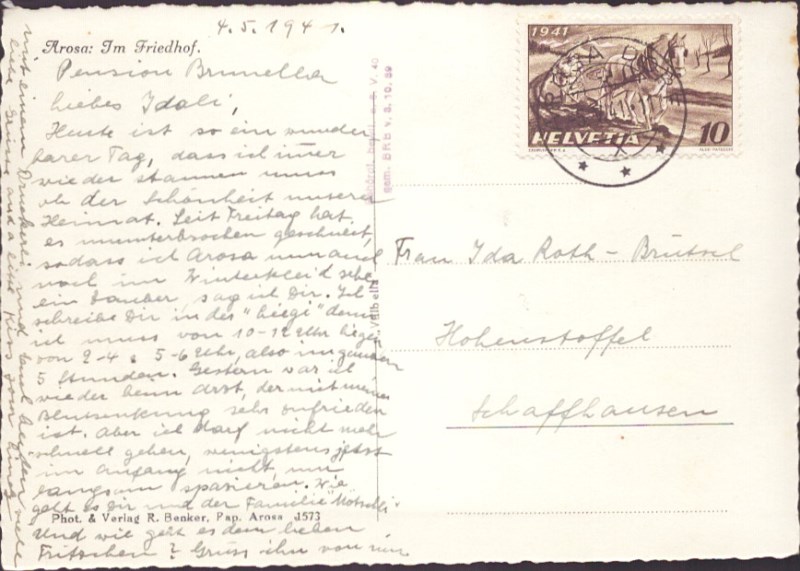 4.5.1941.
Arosa: Im Friedhof.
Pension Brunella
Liebes Idali,
Heute ist so ein wunder
barer Tag, dass ich imer
wieder staunen muss
ob der Schönheit unserer
Heimat. Seit Freitag hat
es ununterbrochen geschneit,
sodass ich Arosa nun auch
noch im Winterkleid sehe
ein Zauber, sag ich Dir. Ich
schreibe Dir in der "liegi" denn
ich muss von 10-12 Uhr liegen
von 2-4 & 5-6 Uhr, also im ganzen
5 Stunden. Gestern war ich
wieder beim Arzt, der mit meiner
Blutsenkung sehr zufrieden
ist. Aber ich darf nicht mehr
schnell gehen, wenigstens jetzt
im Anfang nicht, nur
langsam spazieren. Wie
geht es Dir und der Familie
Phot. & Verlag R. Benker, Pap. Arosa J573
Und wie geht es dem lieben
Fritzchen? Grüss ihn von mir
mit einem Druckerli und Euch beiden viele
liebe Grüsse und einen Kuss vom
gem. BRB v. 3. 10. 39
"Valbella"
1941
HELVETIA 10
Frau Ida Roth-Brütsch
Hohenstoffel
Schaffhausen